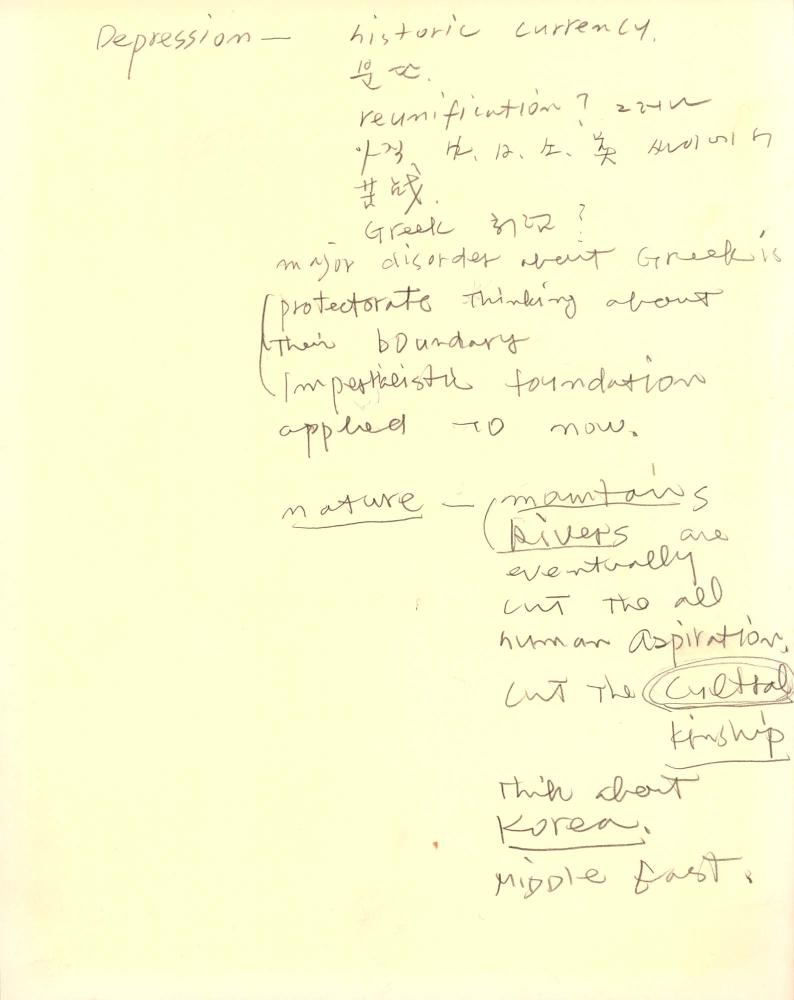 Depression — historic currency.
reunification? 그러나
아직
苦战.
Greek
major disorder about Greek is
protectorate thinking about
their boundary
foundation
applied to now.
nature — (mountains
Rivers are
eventually
cut the all
human aspiration.
cut the
kinship
think about
Korea.
Middle East.